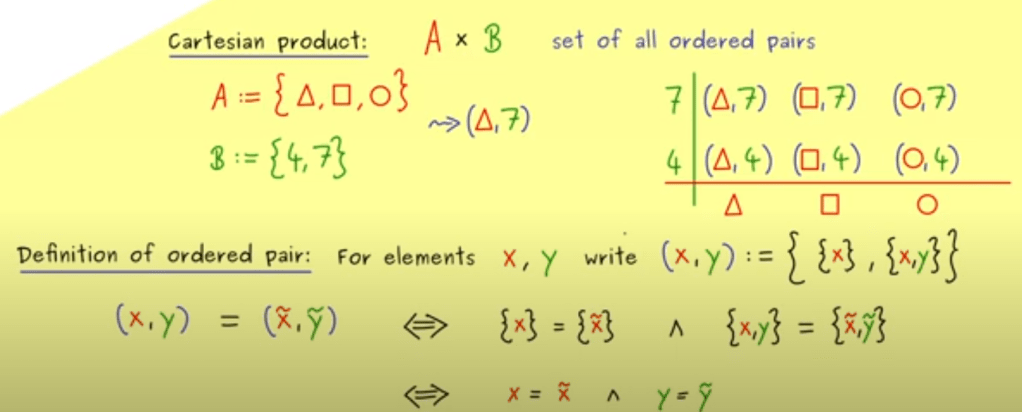 Cartesian product: A × B set of all ordered pairs
A := {△, □, ○}
⇝ (△, 7)
B := {4, 7}
7 (△, 7) (□, 7) (○, 7)
4 (△, 4) (□, 4) (○, 4)
△ □ ○
Definition of ordered pair: For elements x, y write (x, y) := { {x} , {x,y} }
(x, y) = (x̃, ỹ) ⇔ {x} = {x̃} ∧ {x,y} = {x̃,ỹ}
⇔ x = x̃ ∧ y = ỹ